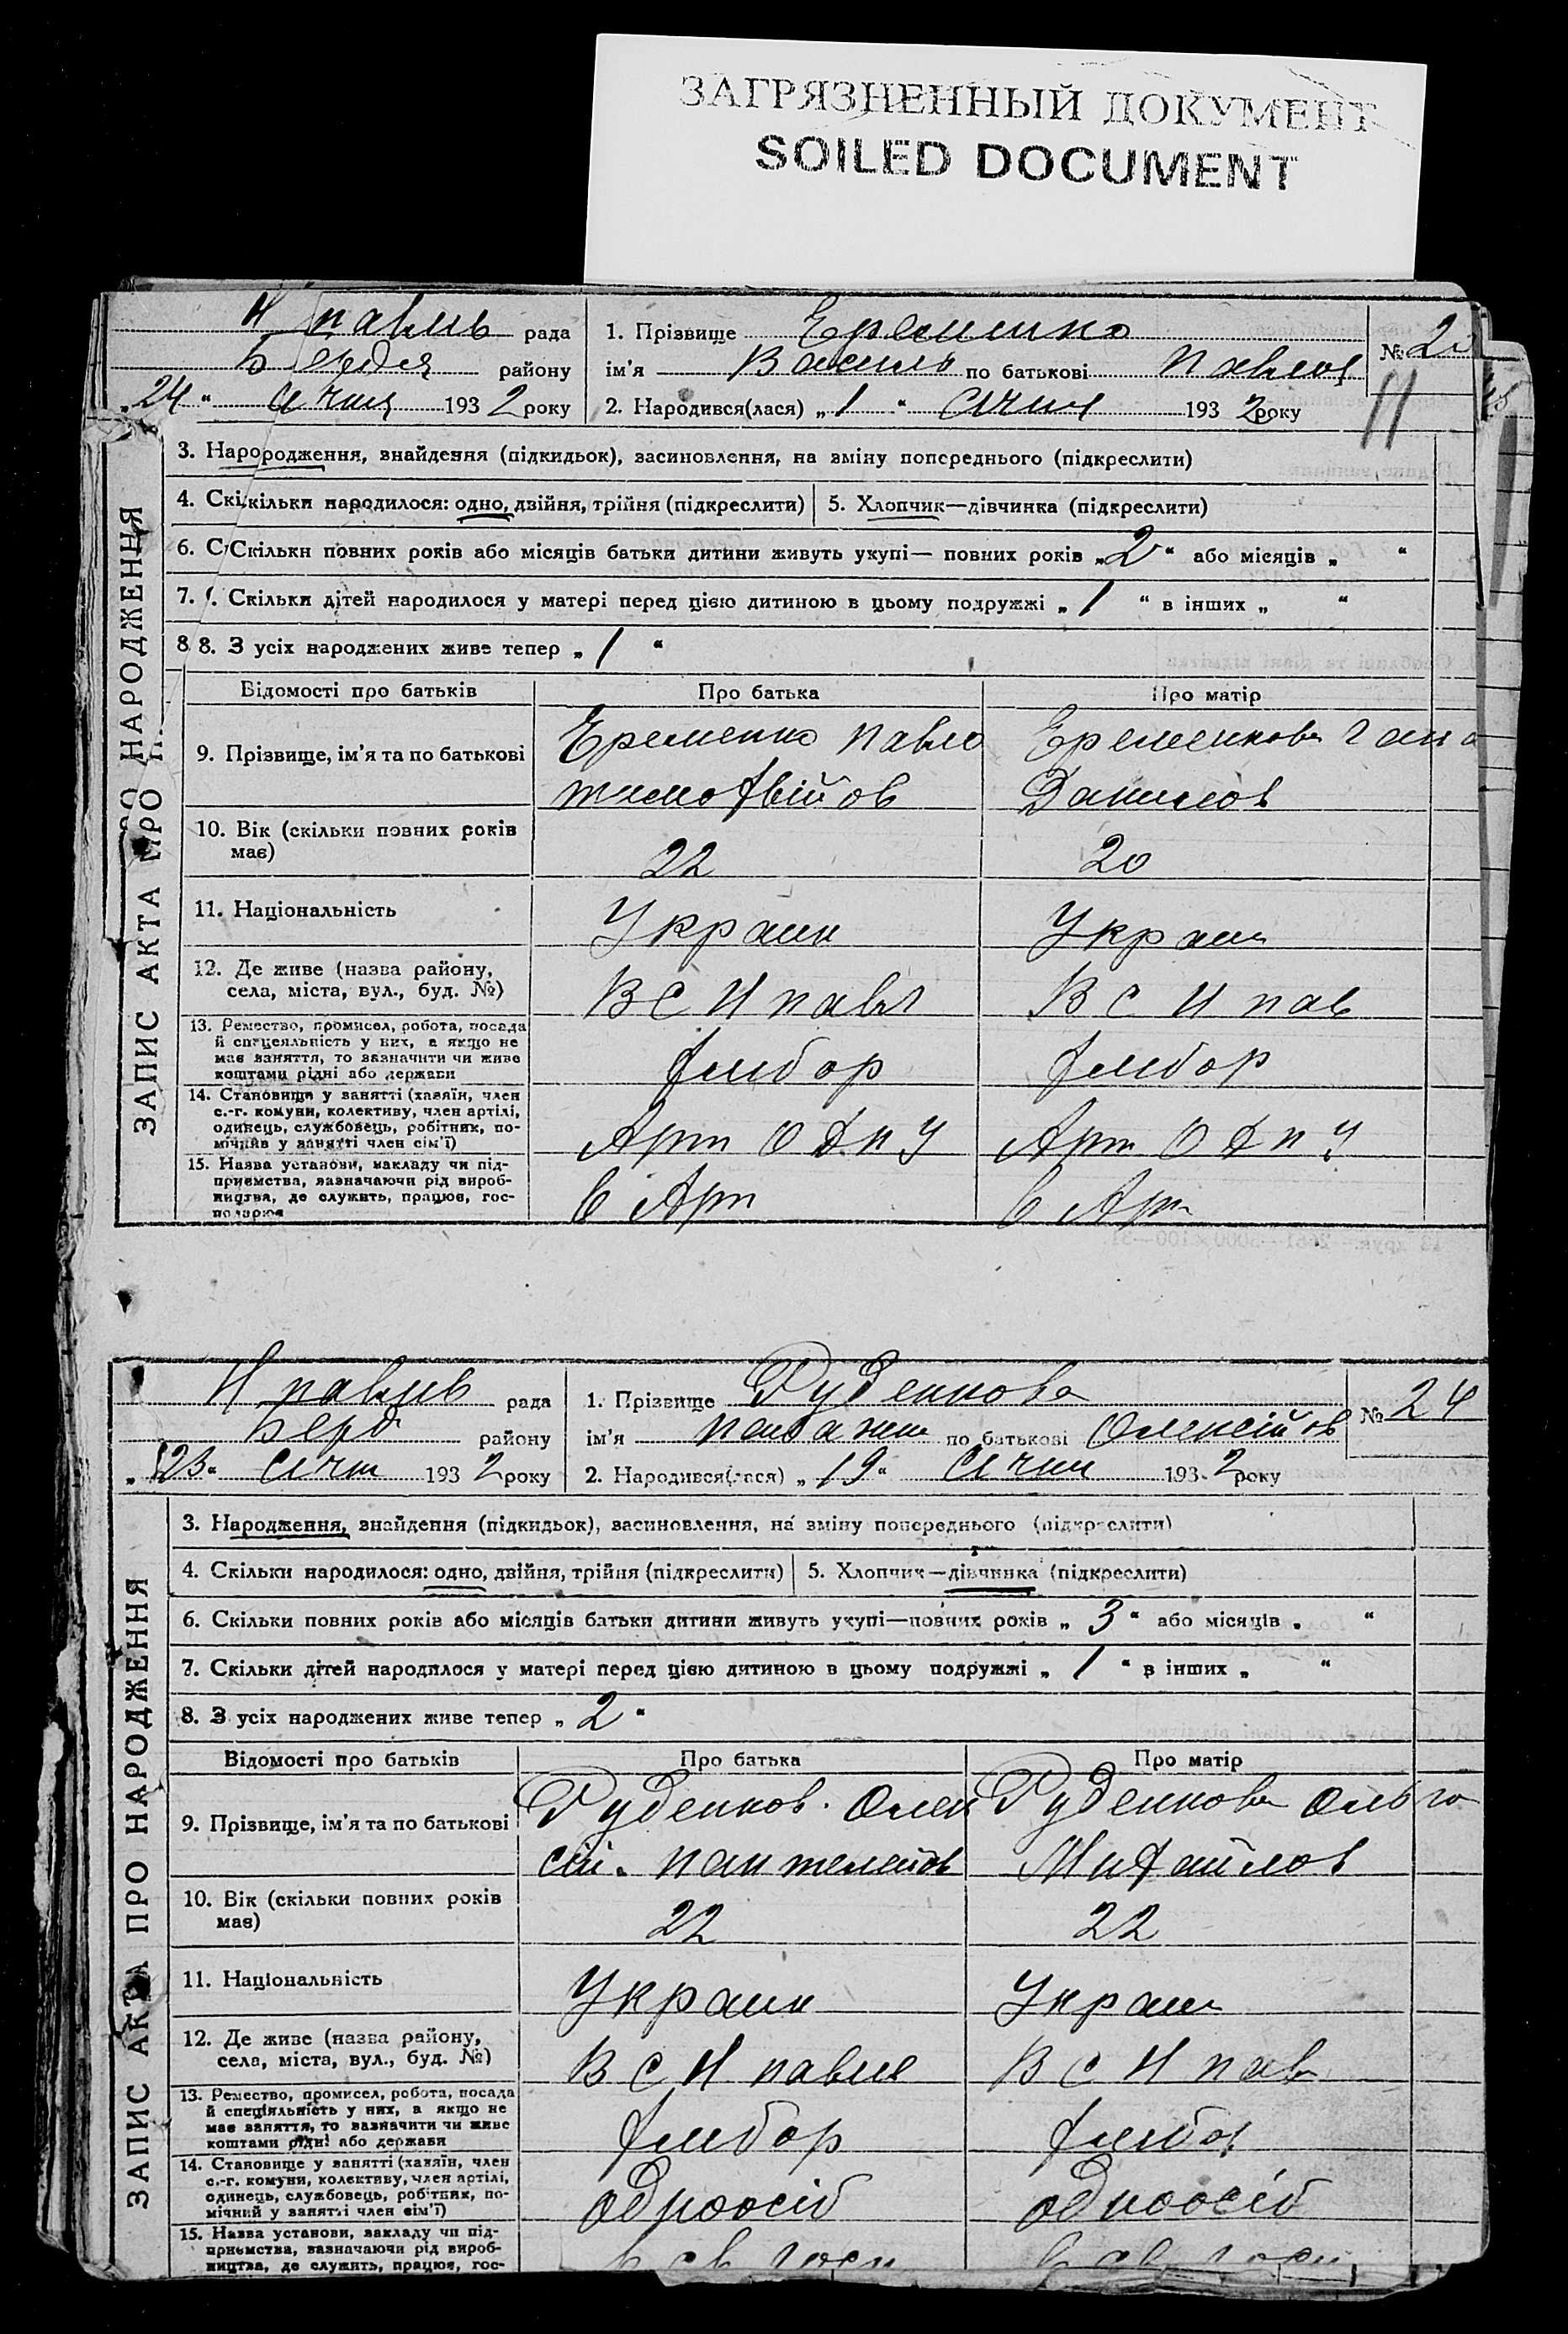 ЗАГРЯЗНЕННЫЙ ДОКУМЕНТ
SOILED DOCUMENT
Н павлів рада
району
„24“ Січня 1932 року
1. Прізвище Еременко
ім'я Василь по батькові Павлов
2. Народився(лася) „1“ Січня 1932 року
№ 23
11
ЗАПИС АКТА ПРО НАРОДЖЕННЯ
3. Народження, знайдення (підкидьок), засиновлення, на зміну попереднього (підкреслити)
4. Скільки народилося: одно, двійня, трійня (підкреслити) 5. Хлопчик—дівчинка (підкреслити)
6. Скільки повних років або місяців батьки дитини живуть укупі— повних років „2“ або місяців „ “
7. Скільки дітей народилося у матері перед цією дитиною в цьому подружжі „1“ в інших „ “
8. З усіх народжених живе тепер „1“
Відомості про батьків Про батька Про матір
9. Прізвище, ім'я та по батькові Еременко Павло Еременкова Гана
тимофвійов Данилов
10. Вік (скільки повних років
має) 22 20
11. Національність Украин Украин
12. Де живе (назва району,
села, міста, вул., буд. №) В С Н павл В С Н пав
13. Ремество, промисел, робота, посада
й спеціяльність у них, а якщо не
має заняття, то зазначити чи живе
коштами рідні або держави
хлибор хлибор
14. Становище у занятті (хазяїн, член
с.-г. комуни, колективу, член артілі,
одинець, службовець, робітник, по-
мічний у занятті член сім'ї)
Арт О Д П У Арт О Д П У
15. Назва установи, закладу чи під-
приємства, зазначаючи рід вироб-
ництва, де служить, працює, гос-
подарює
в Арт в Арт
Н павлів рада
Берд району
„23“ Січня 1932 року
1. Прізвище Руденкова
ім'я по батькові Олексійов
2. Народився(лася) „19“ Січня 1932 року
№ 24
ЗАПИС АКТА ПРО НАРОДЖЕННЯ
3. Народження, знайдення (підкидьок), засиновлення, на зміну попереднього (підкреслити)
4. Скільки народилося: одно, двійня, трійня (підкреслити) 5. Хлопчик—дівчинка (підкреслити)
6. Скільки повних років або місяців батьки дитини живуть укупі—повних років „3“ або місяців „ “
7. Скільки дітей народилося у матері перед цією дитиною в цьому подружжі „1“ в інших „ “
8. З усіх народжених живе тепер „2“
Відомості про батьків Про батька Про матір
9. Прізвище, ім'я та по батькові Руденков Олек Руденкова Ольга
сій. пантелейов Михайлов
10. Вік (скільки повних років
має) 22 22
11. Національність Украин Украин
12. Де живе (назва району,
села, міста, вул., буд. №) В С Н павл В С Н пав
13. Ремество, промисел, робота, посада
й спеціяльність у них, а якщо не
має заняття, то зазначити чи живе
коштами рідні або держави
хлибор хлибор
14. Становище у занятті (хазяїн, член
с.-г. комуни, колективу, член артілі,
одинець, службовець, робітник, по-
мічний у занятті член сім'ї)
одноосіб одноосіб
15. Назва установи, закладу чи під-
приємства, зазначаючи рід вироб-
ництва, де служить, працює, гос-